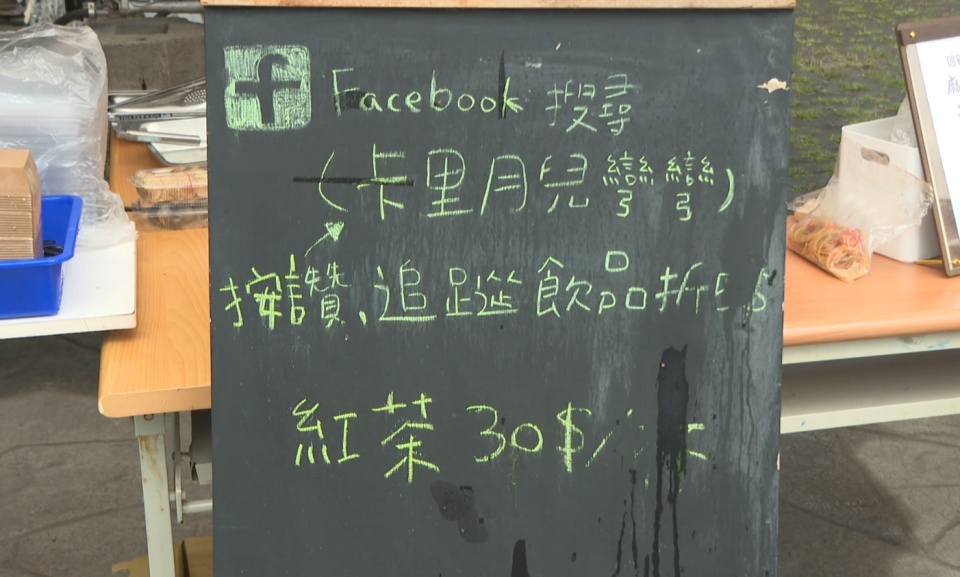 f Facebook 搜尋
(卡里月兒彎彎)
按讚.追蹤飲品折5$
紅茶 30$/